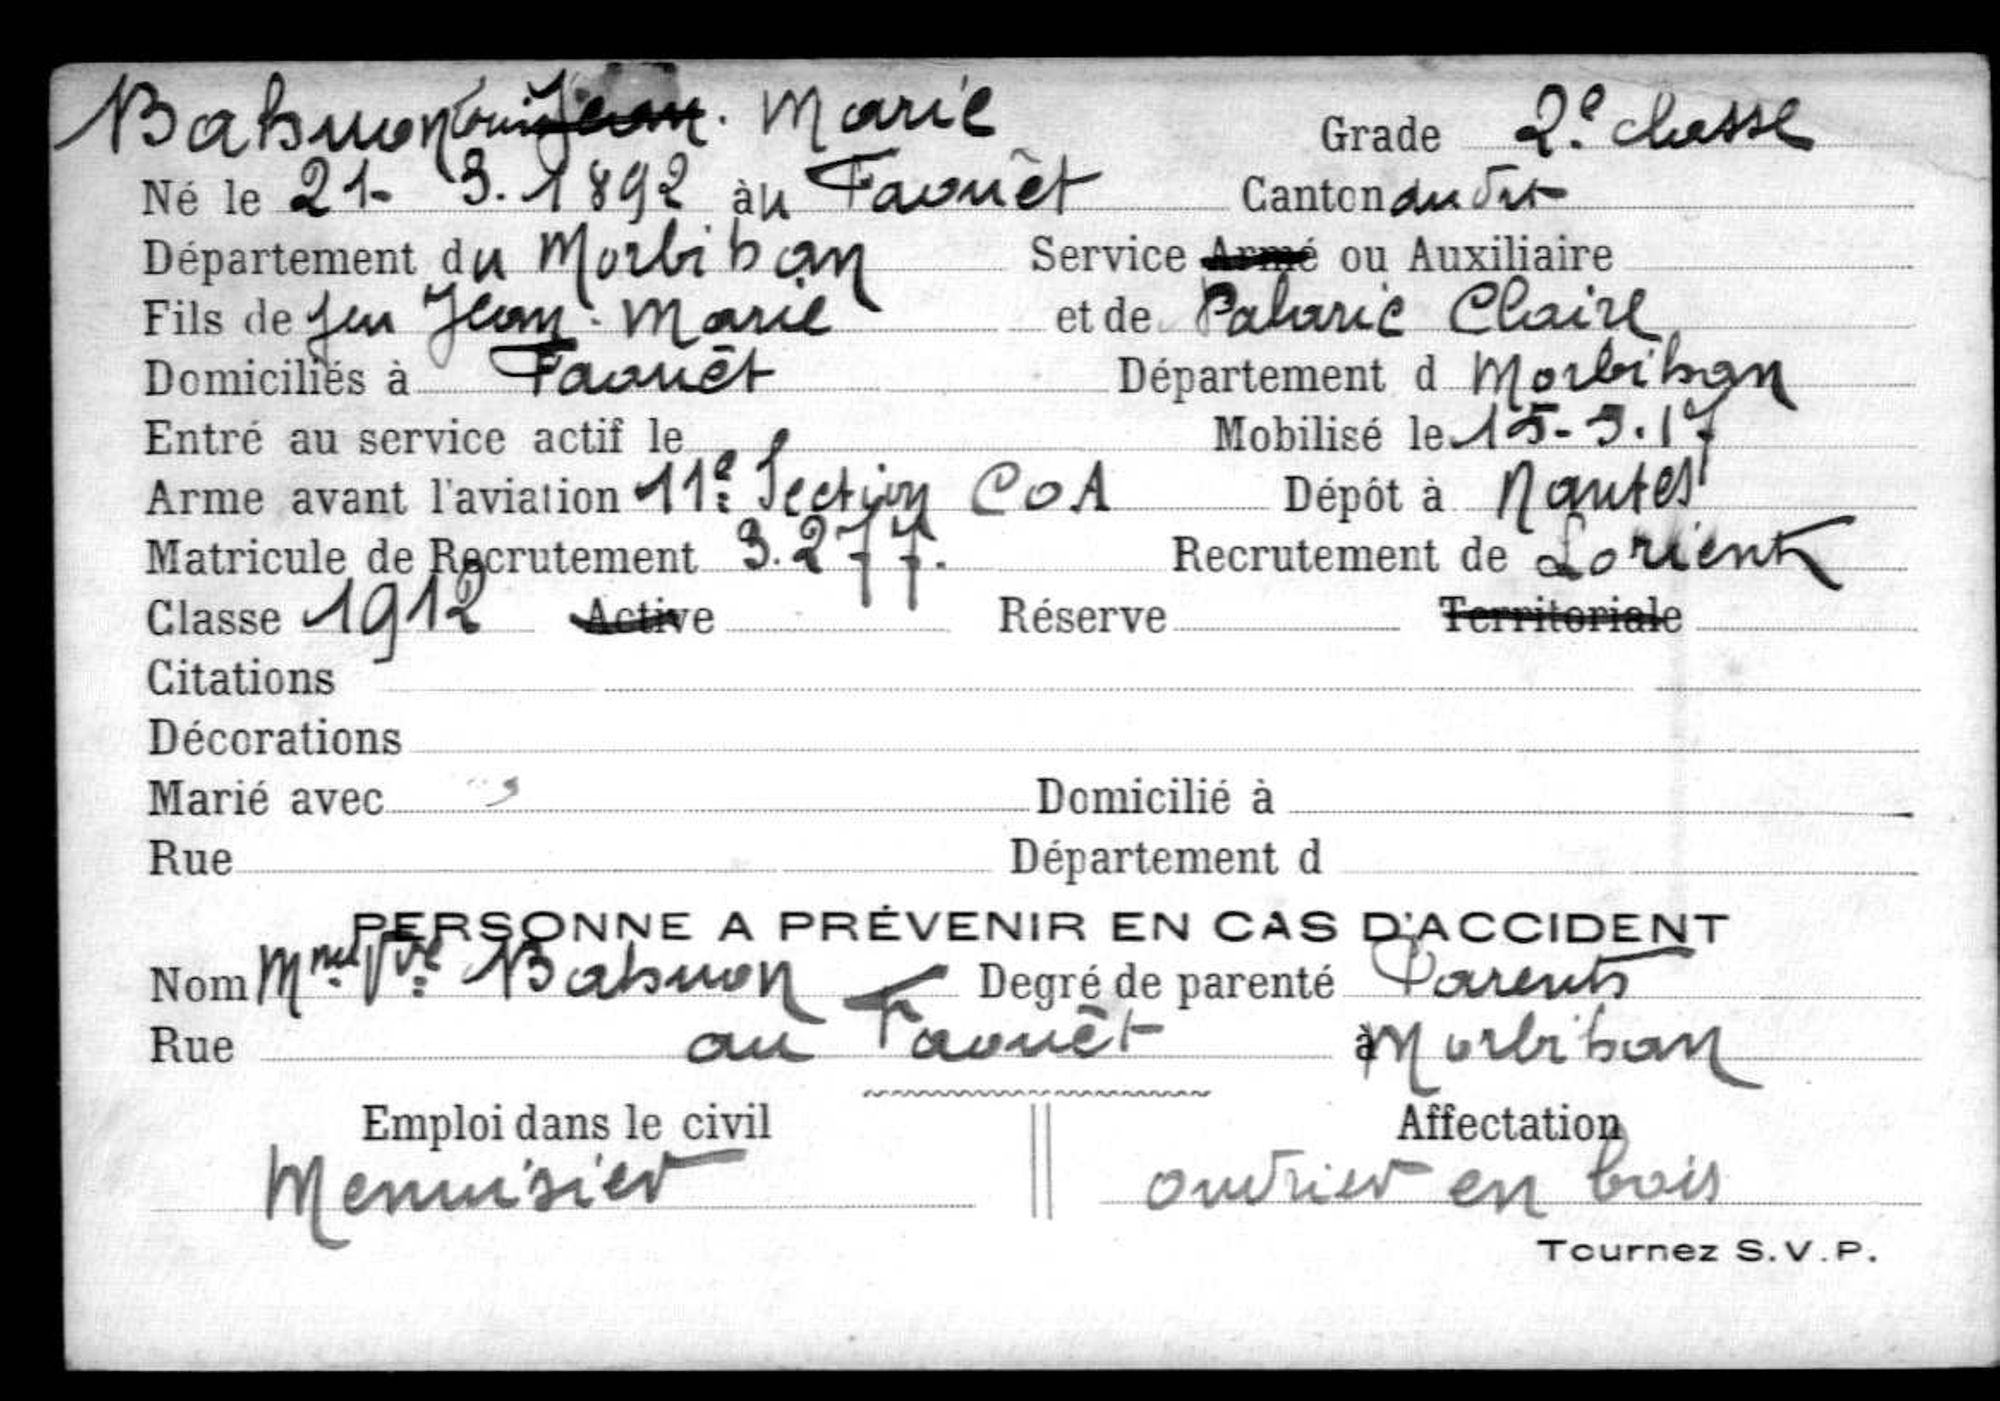 Babuon Louis Jean. Marie Grade 2e classe
Né le 21- 3. 1892 àu Faouët Canton du dit
Département du Morbihan Service Armé ou Auxiliaire
Fils de feu Jean-Marie et de Palaric Claire
Domiciliés à Faouët Département d Morbihan
Entré au service actif le Mobilisé le 15-3.17
Arme avant l'aviation 11e Section COA Dépôt à Nantes
Matricule de Recrutement 3.277. Recrutement de Lorient
Classe 1912 Active Réserve Territoriale
Citations
Décorations
Marié avec Domicilié à
Rue Département d
PERSONNE A PRÉVENIR EN CAS D'ACCIDENT
Nom Mme Vve Babuon Degré de parenté Parents
Rue au Faouët à Morbihan
Emploi dans le civil Affectation
Menuisier ouvrier en bois
Tournez S.V.P.